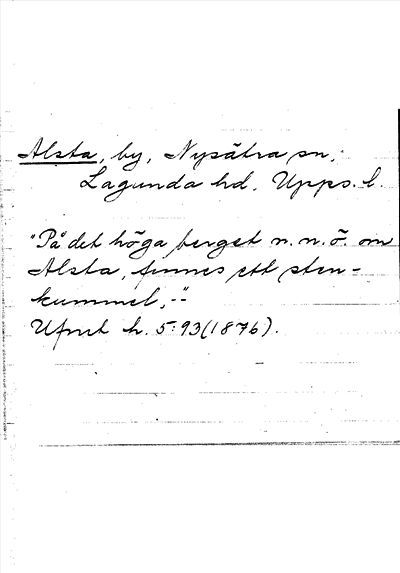 Alsta, by, Nysätra sn,
Lagunda hd, Upps. l.
"På det höga berget n.n.ö. om
Alsta, finnes ett sten-
kummel, --"
Ufmt h. 5:93 (1876).